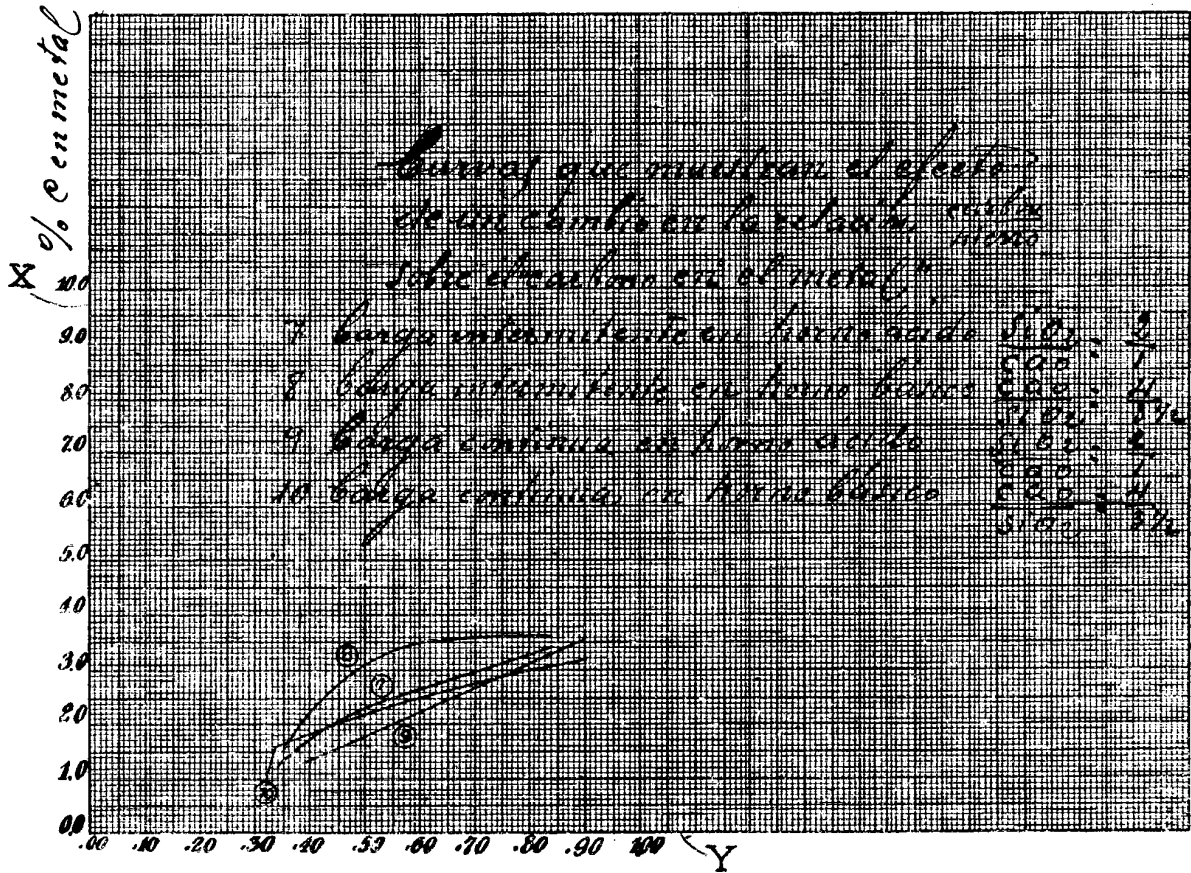 % C en metal
Curvas que muestran el efecto
de un cambio en la relación
sobre el carbono en el metal"
7 Carga intermitente en horno ácido SiO2 : 2
CaO 1
8 Carga intermitente en horno básico CaO : 4
SiO2 3 1/2
9 Carga continua en horno ácido SiO2 : 2
CaO 1
10 Carga continua en horno básico CaO : 4
SiO2 3 1/2
X
10.0
9.0
8.0
7.0
6.0
5.0
4.0
3.0
2.0
1.0
0.0
7
9
10
.00 .10 .20 .30 .40 .50 .60 .70 .80 .90 1.00
Y